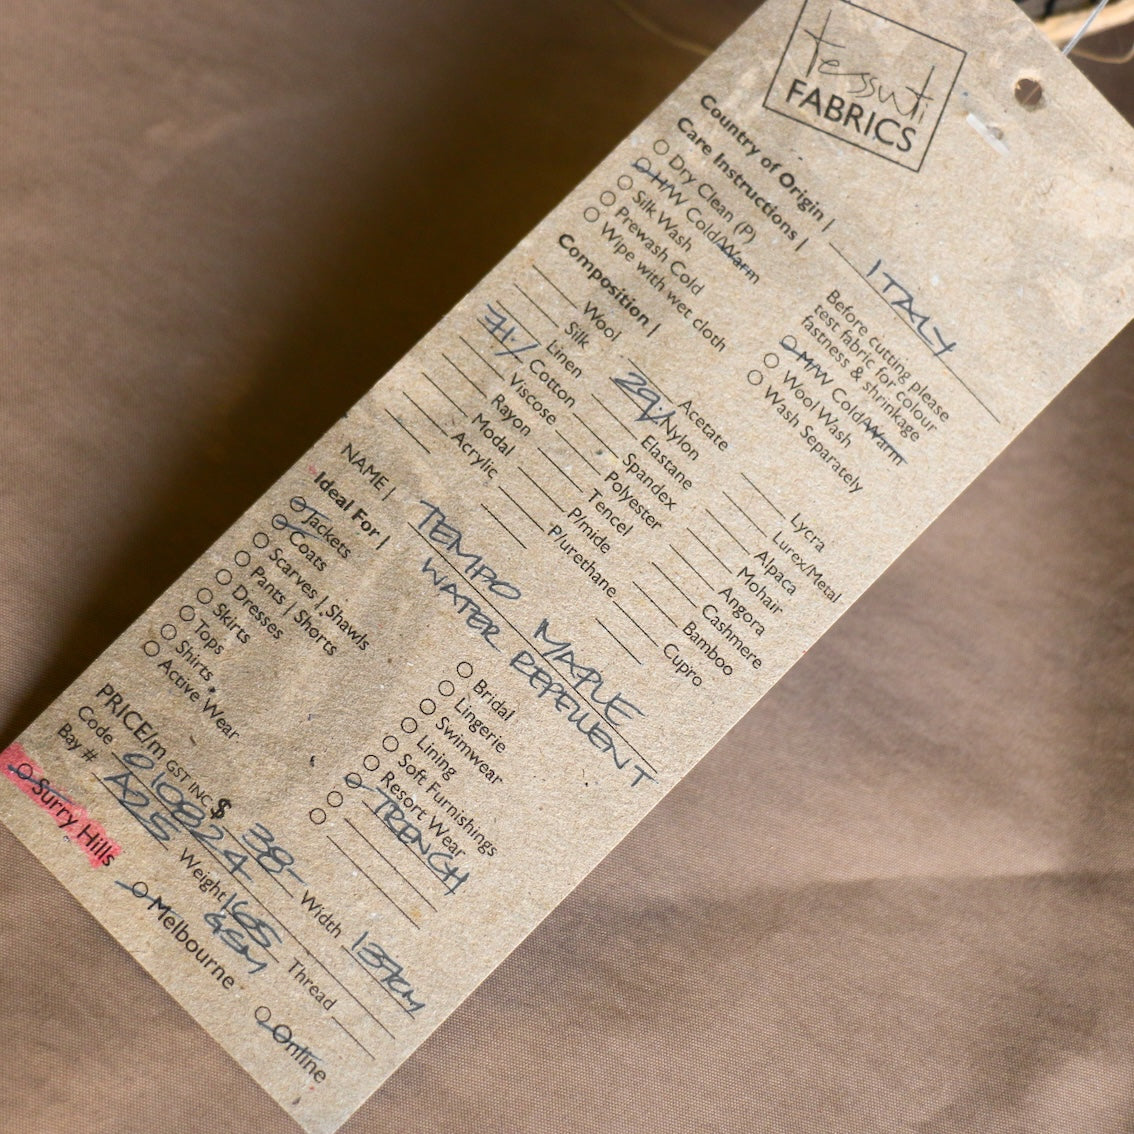 tessuti
FABRICS
Country of Origin | ITALY
Care Instructions |
Before cutting please
test fabric for colour
fastness & shrinkage
Dry Clean (P)
H/W Cold/Warm
Silk Wash
Prewash Cold
Wipe with wet cloth
M/W Cold/Warm
Wool Wash
Wash Separately
Composition |
Wool
Silk
Linen
71% Cotton
Viscose
Rayon
Modal
Acrylic
Acetate
29% Nylon
Elastane
Spandex
Polyester
Tencel
P/mide
P/urethane
Lycra
Lurex/Metal
Alpaca
Mohair
Angora
Cashmere
Bamboo
Cupro
NAME | TEMPO MAPLE
WATER REPELLENT
Ideal For |
Jackets
Coats
Scarves | Shawls
Pants | Shorts
Dresses
Skirts
Tops
Shirts
Active Wear
Bridal
Lingerie
Swimwear
Lining
Soft Furnishings
Resort Wear
TRENCH
PRICE/m GST INC $ 38- Width 137cm
Code 010824 Weight 165 GSM Thread
Bay # A25
Surry Hills Melbourne Online